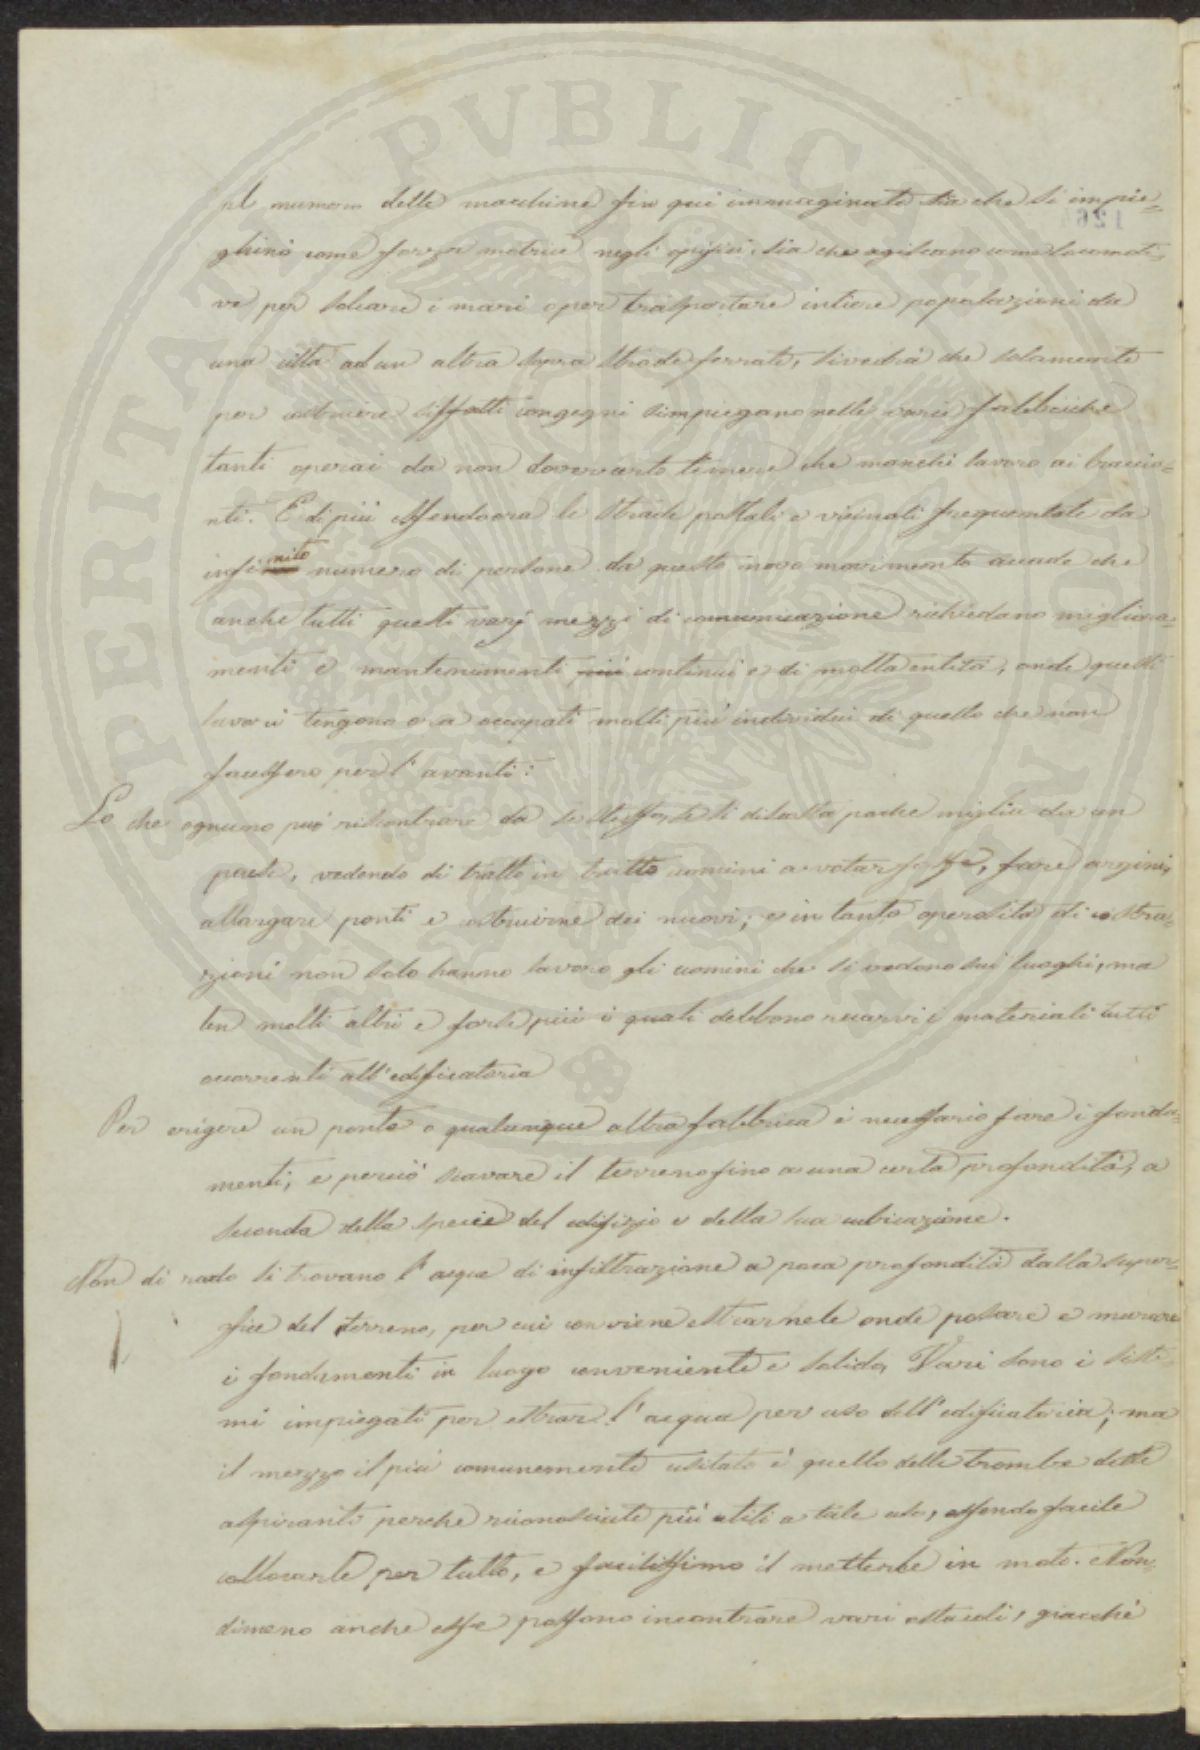 al numero delle macchine fin qui immaginate sia che si impie=
ghino come forza motrice negli opifici, sia che agiscano come locomoti=
ve per solcare i mari o per trasportare intiere popolazioni da
una città ad un altra sopra strade ferrate, si vedrà che solamente
per costruire siffatti congegni s'impiegano nelle varie fabbriche
tanti operai da non dover certo temere che manchi lavoro ai braccian=
ti. E di più essendo ora le strade postali e vicinali frequentate da
infinito numero di persone da questo novo movimento accade che
anche tutti questi varj mezzi di comunicazione richiedano migliora=
menti e mantenimenti più continui e di molta entità, onde questi
lavori tengono ora occupati molti più individui di quello che non
facessero per l'avanti.
Lo che ognuno può riscontrare da se stesso, se si discosta poche miglia da un
paese, vedendo di tratto in tratto uomini a votar fosse, fare argini,
allargare ponti e costruirne dei nuovi; e in tanta operosità di costru=
zioni non solo hanno lavoro gli uomini che si vedono sui luoghi, ma
ben molti altri e forse più i quali debbono recarvi i materiali tutti
occorrenti all'edificatoria
Per erigere un ponte o qualunque altra fabbrica è necessario fare i fonda=
menti, e perciò scavare il terreno fino a una certa profondità, a
seconda della specie del edifizio e della sua ubicazione.
Non di rado si trovano l'acque di infiltrazione a poca profondità dalla super=
ficie del terreno, per cui conviene estrarnele onde posare e murare
i fondamenti in luogo conveniente e solido. Vari sono i siste=
mi impiegati per estrar l'acqua per uso dell'edificatoria; ma
il mezzo il più comunemente usitato è quello delle trombe dette
aspiranti perche riconosciute più utili a tale uso, essendo facile
collocarle per tutto, e facilissimo il metterle in moto. Non=
dimeno anche esse possono incontrare vari ostacoli, giacchè
PERITAT PVBLICAE